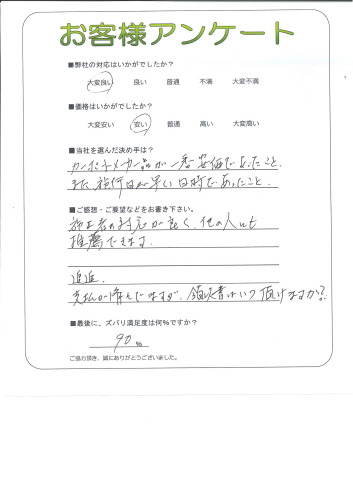 お客様アンケート
■弊社の対応はいかがでしたか?
大変良い 良い 普通 不満 大変不満
■価格はいかがでしたか?
大変安い 安い 普通 高い 大変高い
■当社を選んだ決め手は?
カーポートメーカー品が一番安価であったこと、
また、施行日が早い日時であったこと、
■ご感想・ご要望などをお書き下さい。
施工者の対応が良く、他の人にも
推薦できます。
追進、
支払が済んでますが、領収書はいつ頂けますか?
■最後に、ズバリ満足度は何%ですか?
90 %
ご協力頂き、誠にありがとうございました。